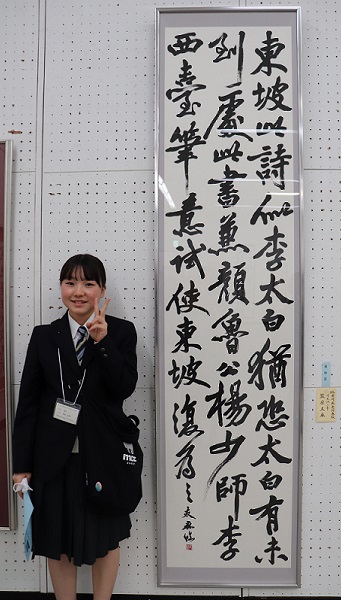 東坡此詩似李太白猶恐太白有未
到處此書兼顔魯公楊少師李
西臺筆意試使東坡復為之
mcc